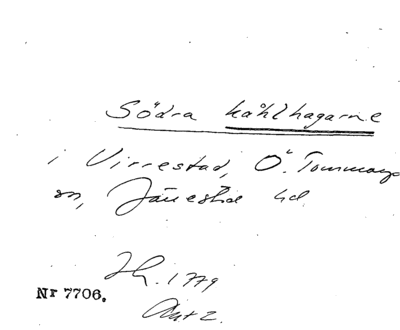 Södra kåhlhagarne
i Virrestad, Ö. Tommarps
sn, Järrestad hd.
Lh. 1779
Nr 7706.
Akt 2.